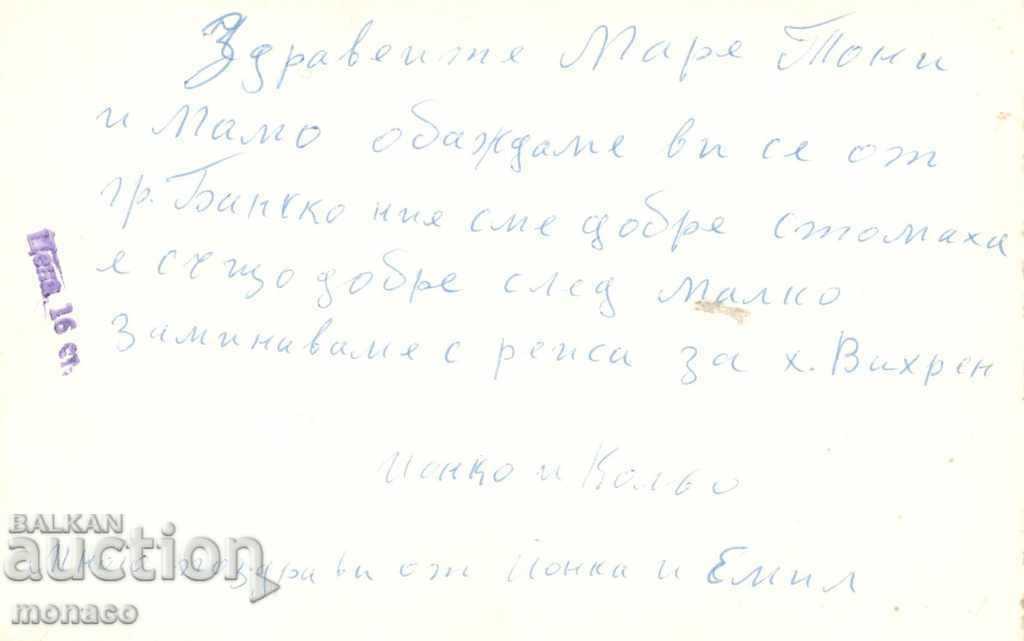 Здравеите Маре Тони
и Мамо обаждаме ви се от
гр. Банско ние сме добре стомаха
е също добре след малко
заминаваме с реиса за х. Вихрен
Цена 16 ст.
и Кольо
поздрави от Ионка и Емил
BALKAN
auction
monaco